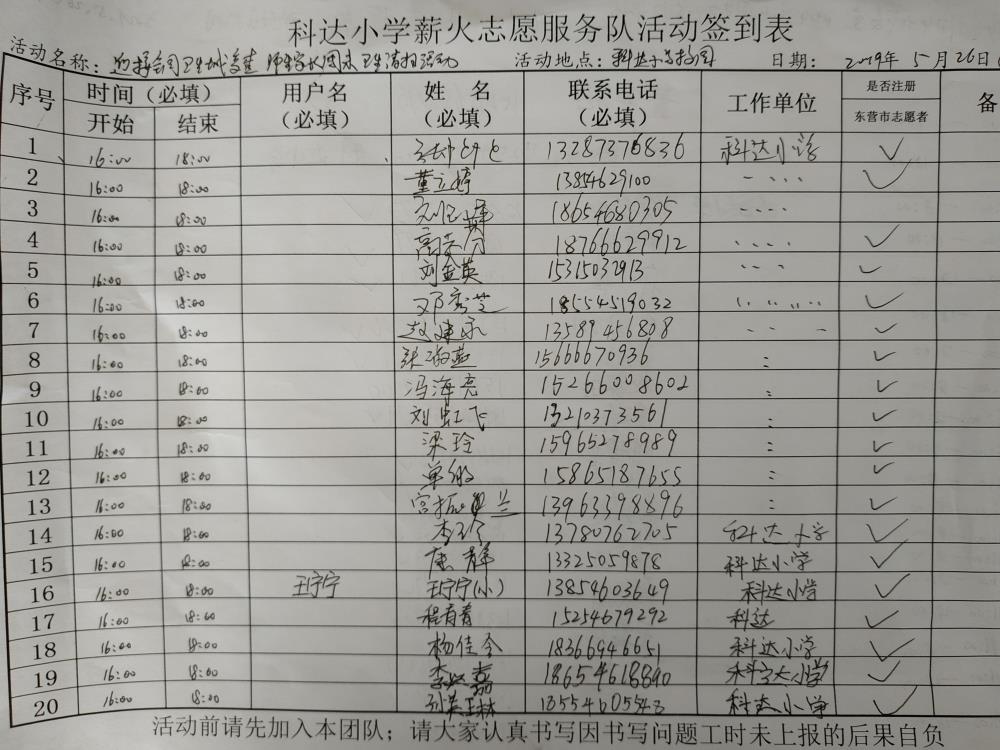 科达小学薪火志愿服务队活动签到表
活动名称： 活动地点：科达小学校园 日期：2019年5月26日
序号 时间（必填） 用户名（必填） 姓 名（必填） 联系电话（必填） 工作单位 是否注册 东营市志愿者 备
开始 结束
1 16:00 18:00 13287376836 科达小学 ✓
2 16:00 18:00 董立婷 13854629100 ✓
3 16:00 18:00 18654680305
4 16:00 18:00 高 18766629912 ✓
5 16:00 18:00 刘金英 15315032913 ✓
6 16:00 18:00 邓秀芝 18554519032 ✓
7 16:00 18:00 赵建永 13589456808 ✓
8 16:00 18:00 张淑燕 15666670936 ✓
9 16:00 18:00 冯海亮 15266008602 ✓
10 16:00 18:00 刘虹飞 13210373561 ✓
11 16:00 18:00 梁玲 15965278989 ✓
12 16:00 18:00 单 15865187655 ✓
13 16:00 18:00 宫 兰 13963398896 ✓
14 16:00 18:00 李 13780762705 科达小学 ✓
15 16:00 18:00 静 13325059878 科达小学 ✓
16 16:00 18:00 王宁宁 王宁宁(小) 13854603649 科达小学 ✓
17 16:00 18:00 程育青 15254679292 科达 ✓
18 16:00 18:00 杨佳令 18366946651 科达小学 ✓
19 16:00 18:00 李 18654618890 科达小学 ✓
20 16:00 18:00 科达小学 ✓
活动前请先加入本团队；请大家认真书写因书写问题工时未上报的后果自负